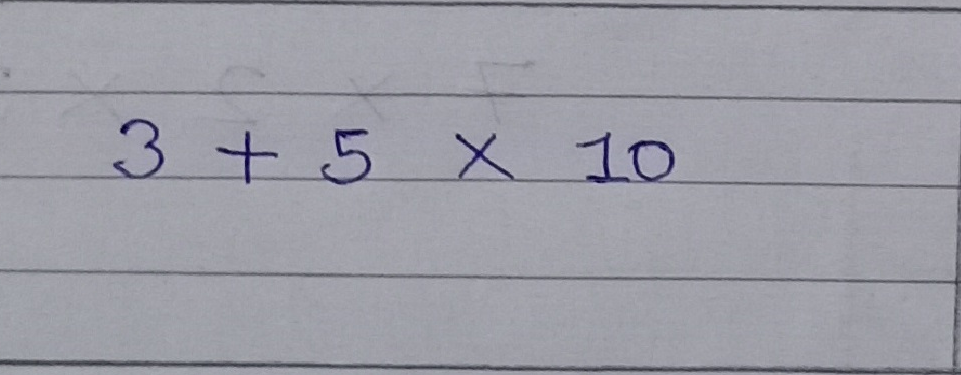 3 + 5 × 10